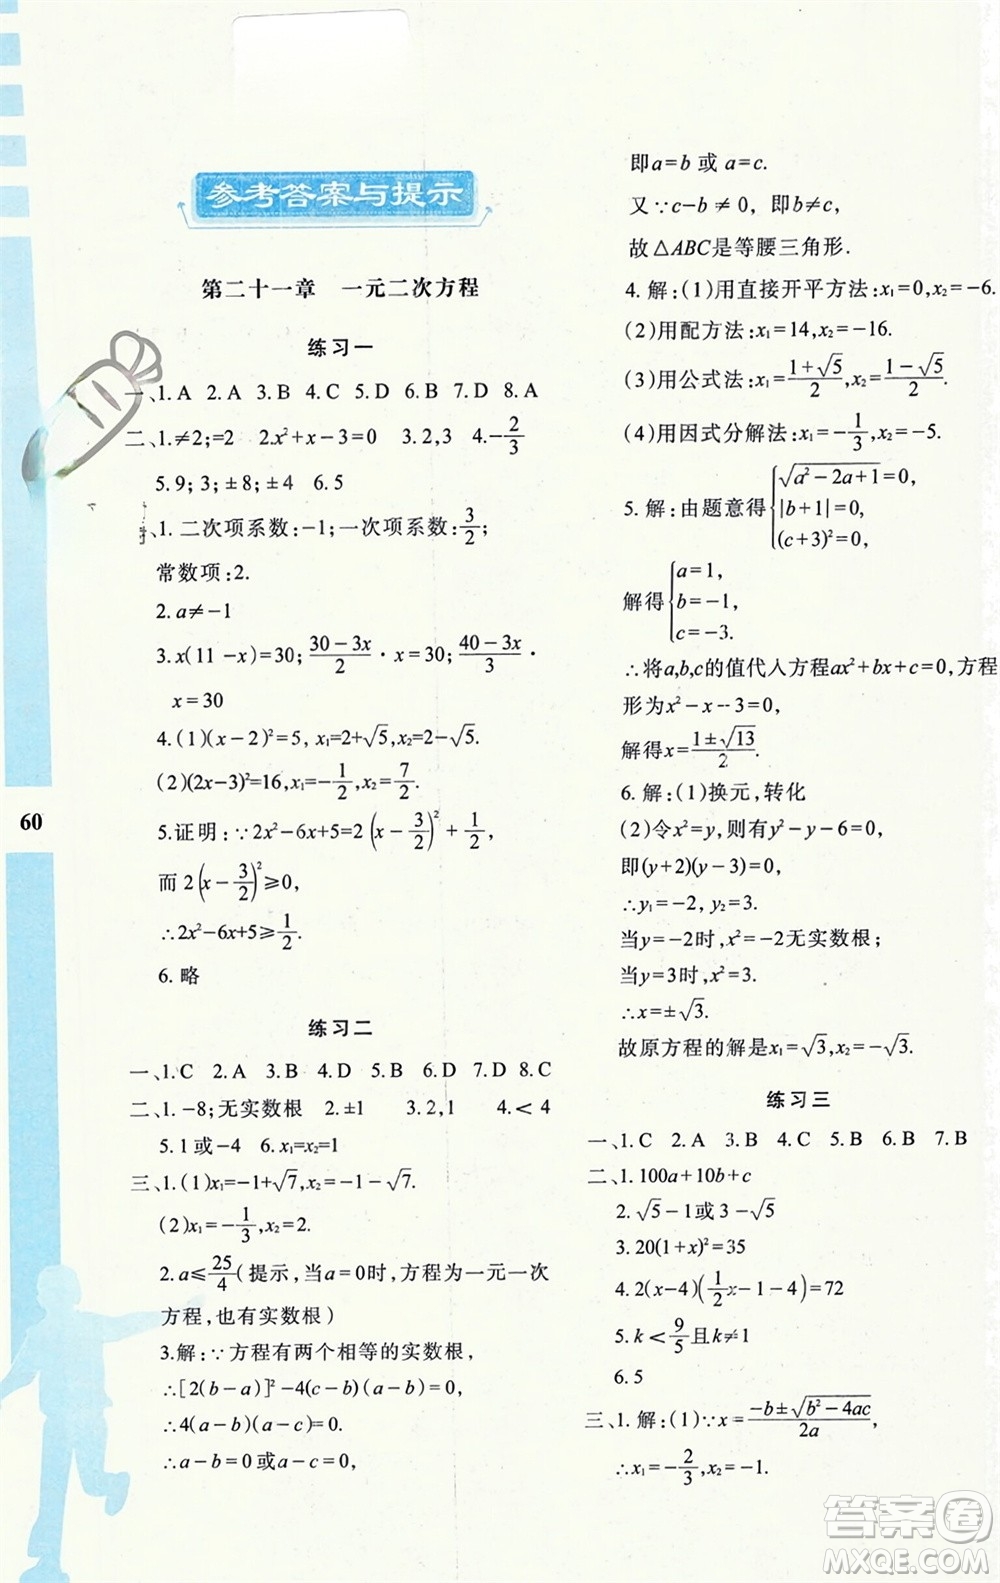 参考答案与提示
第二十一章 一元二次方程
练习一
一、1.A 2.A 3.B 4.C 5.D 6.B 7.D 8.A
二、1.≠2;=2 2.x²+x-3=0 3.2,3 4.-2/3
5.9;3;±8;±4 6.5
1.二次项系数:-1;一次项系数:3/2;
常数项:2.
2.a≠-1
3.x(11-x)=30;(30-3x)/2·x=30;(40-3x)/3·
x=30
4.(1)(x-2)²=5,x₁=2+√5,x₂=2-√5.
(2)(2x-3)²=16,x₁=-1/2,x₂=7/2.
5.证明:∵2x²-6x+5=2(x-3/2)²+1/2,
而2(x-3/2)²≥0,
∴2x²-6x+5≥1/2.
6.略
练习二
一、1.C 2.A 3.B 4.D 5.C 6.D 7.D 8.C
二、1.-8;无实数根 2.±1 3.2,1 4.<4
5.1或-4 6.x₁=x₂=1
三、1.(1)x₁=-1+√7,x₂=-1-√7.
(2)x₁=-1/3,x₂=2.
2.a≤25/4(提示,当a=0时,方程为一元一次
方程,也有实数根)
3.解:∵方程有两个相等的实数根,
∴[2(b-a)]²-4(c-b)(a-b)=0,
∴4(a-b)(a-c)=0,
∴a-b=0或a-c=0,
60
即a=b或a=c.
又∵c-b≠0,即b≠c,
故△ABC是等腰三角形.
4.解:(1)用直接开平方法:x₁=0,x₂=-6.
(2)用配方法:x₁=14,x₂=-16.
(3)用公式法:x₁=(1+√5)/2,x₂=(1-√5)/2.
(4)用因式分解法:x₁=-1/3,x₂=-5.
5.解:由题意得{√(a²-2a+1)=0,
|b+1|=0,
(c+3)²=0,
解得{a=1,
b=-1,
c=-3.
∴将a,b,c的值代人方程ax²+bx+c=0,方程
形为x²-x-3=0,
解得x=(1±√13)/2.
6.解:(1)换元,转化
(2)令x²=y,则有y²-y-6=0,
即(y+2)(y-3)=0,
∴y₁=-2,y₂=3.
当y=-2时,x²=-2无实数根;
当y=3时,x²=3.
∴x=±√3.
故原方程的解是x₁=√3,x₂=-√3.
练习三
一、1.C 2.A 3.B 4.C 5.B 6.B 7.B
二、1.100a+10b+c
2.√5-1或3-√5
3.20(1+x)²=35
4.2(x-4)(1/2x-1-4)=72
5.k<9/5且k≠1
6.5
三、1.解:(1)∵x=(-b±√(b²-4ac))/2a,
∴x₁=-2/3,x₂=-1.
答案圈
MXQE.COM